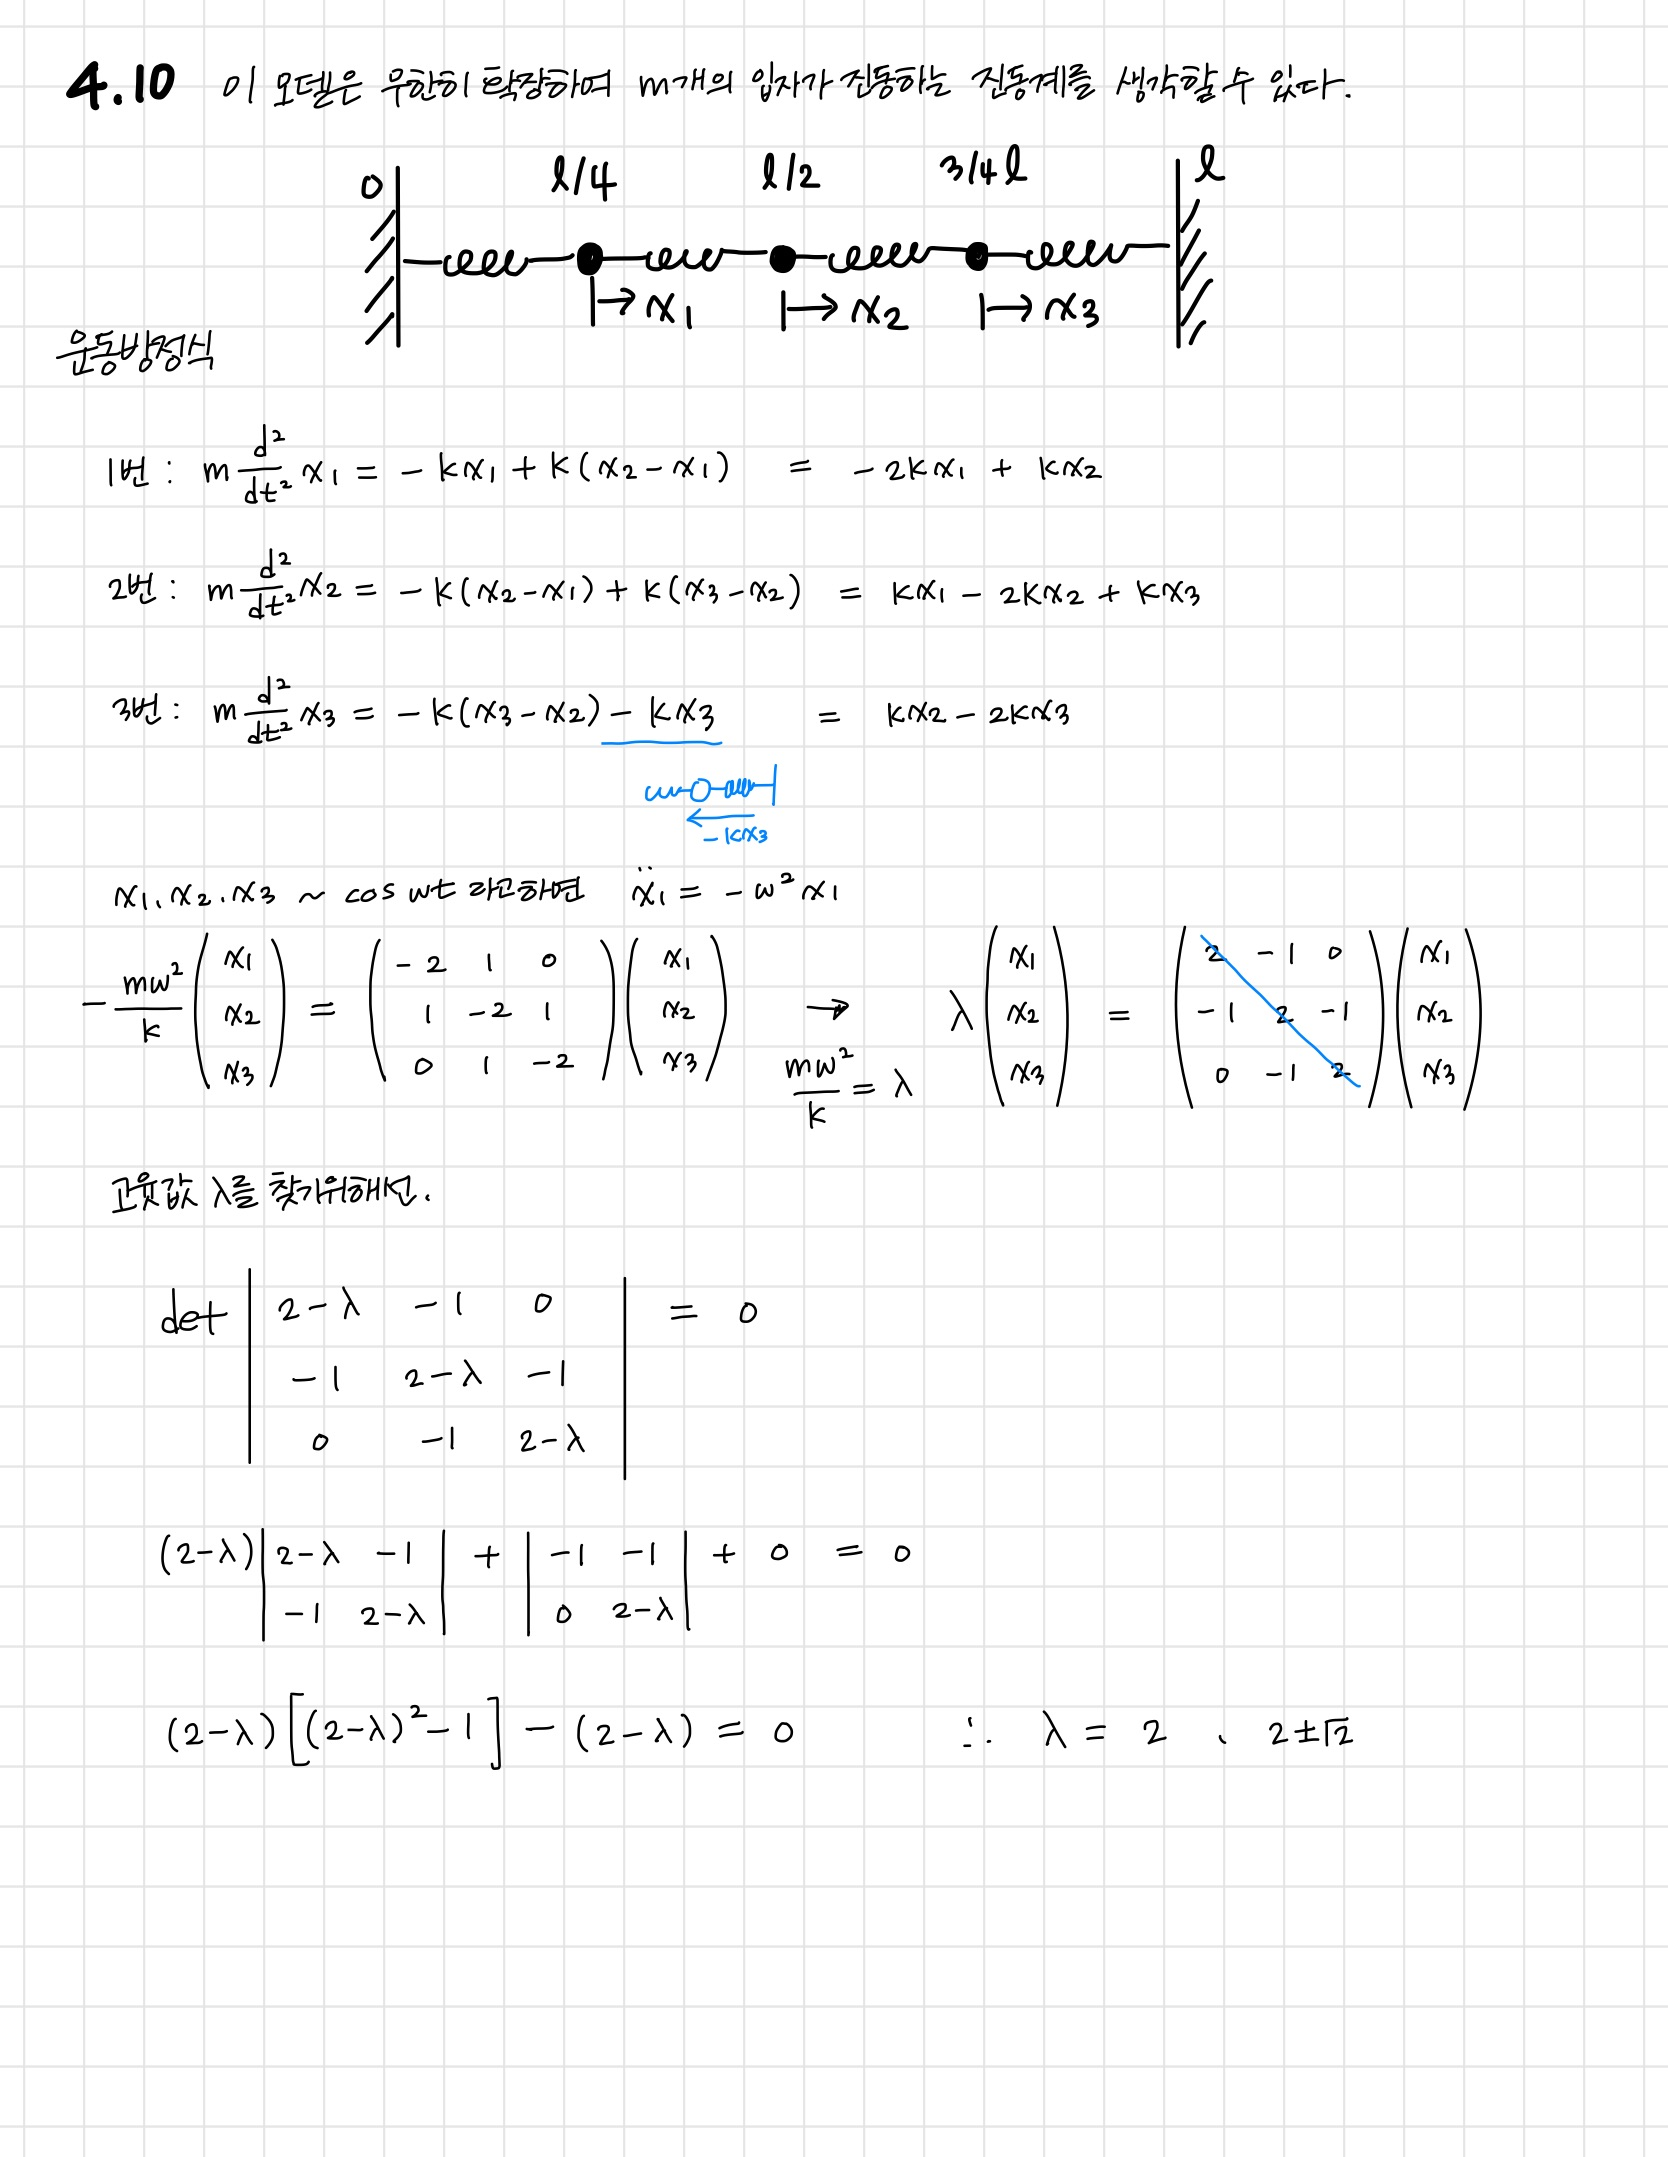 4.10 이 모델은 무한히 확장하여 m개의 입자가 진동하는 진동계를 생각할 수 있다.
0 l/4 l/2 3/4 l l
x₁ x₂ x₃
운동방정식
1번 : m d²/dt² x₁ = - kx₁ + k(x₂ - x₁) = - 2kx₁ + kx₂
2번 : m d²/dt² x₂ = - k(x₂ - x₁) + k(x₃ - x₂) = kx₁ - 2kx₂ + kx₃
3번 : m d²/dt² x₃ = - k(x₃ - x₂) - kx₃ = kx₂ - 2kx₃
- kx₃
x₁, x₂, x₃ ~ cos wt 라고하면 ẍ₁ = - ω² x₁
- mω²/k (x₁ x₂ x₃) = (-2 1 0 / 1 -2 1 / 0 1 -2) (x₁ x₂ x₃) → mω²/k = λ λ (x₁ x₂ x₃) = (2 -1 0 / -1 2 -1 / 0 -1 2) (x₁ x₂ x₃)
고윳값 λ를 찾기위해선.
det | 2-λ -1 0 | = 0
-1 2-λ -1
0 -1 2-λ
(2-λ) | 2-λ -1 | + | -1 -1 | + 0 = 0
-1 2-λ 0 2-λ
(2-λ) [(2-λ)² - 1] - (2-λ) = 0 ∴ λ = 2 , 2±√2